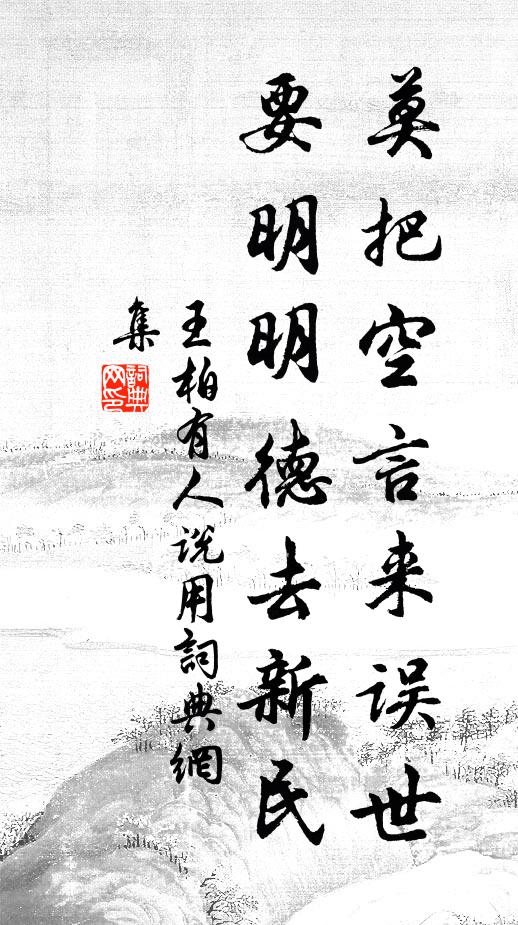 莫把空言来误世
要明明德去新民
王柏有人说用詞典網
集
詞典
网印